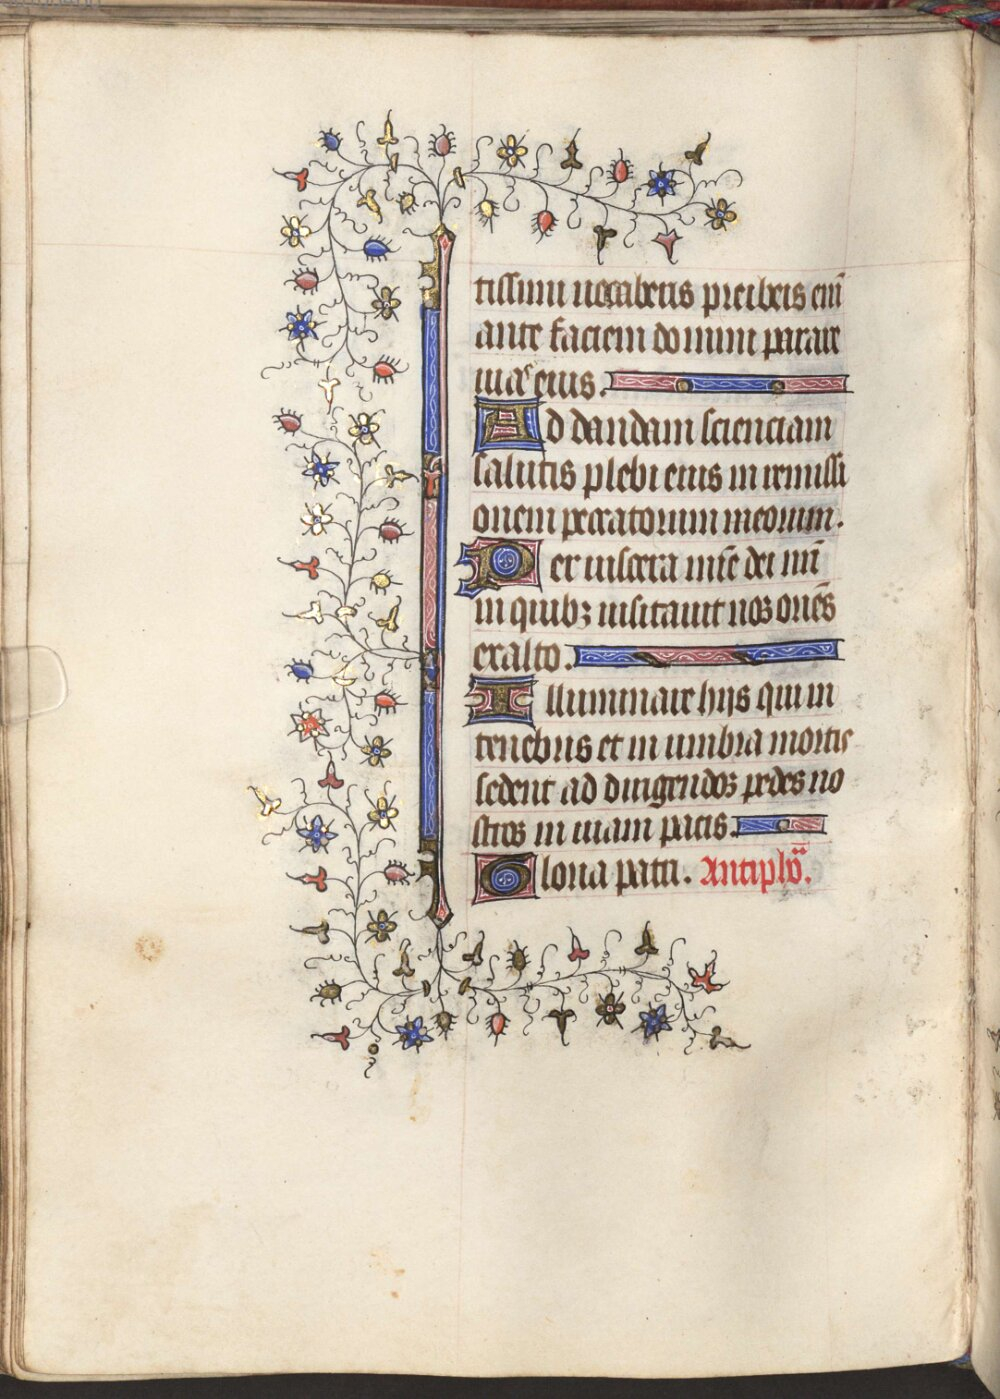 tissimi uocaberis preibeis eni̅
ante faciem domini parare
uias eius.
Ad dandam scienciam
salutis plebi eius in remissi
onem peccatorum meorum.
Per uiscera mi̅e dei nr̅i
in quibꝫ uisitauit nos oriẽs
exalto.
Illuminare hijs qui in
tenebris et in umbra mortis
sedent ad dirigendos pedes no
stros in uiam pacis.
Gloria patri. Antiph̅o.